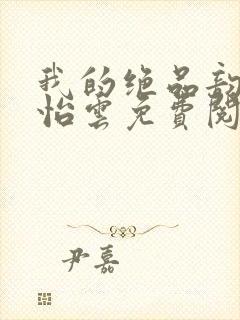 我的绝品
怡雲免費閱
尹嘉